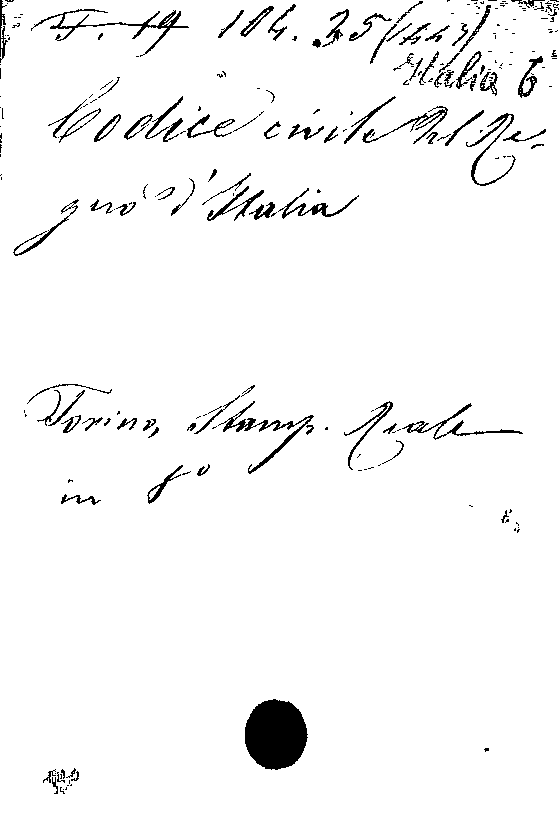 F. 19 104. 35
Italia 6
Codice civile del Re-
gno d'Italia
Torino, Stamp. Reale
in 8º